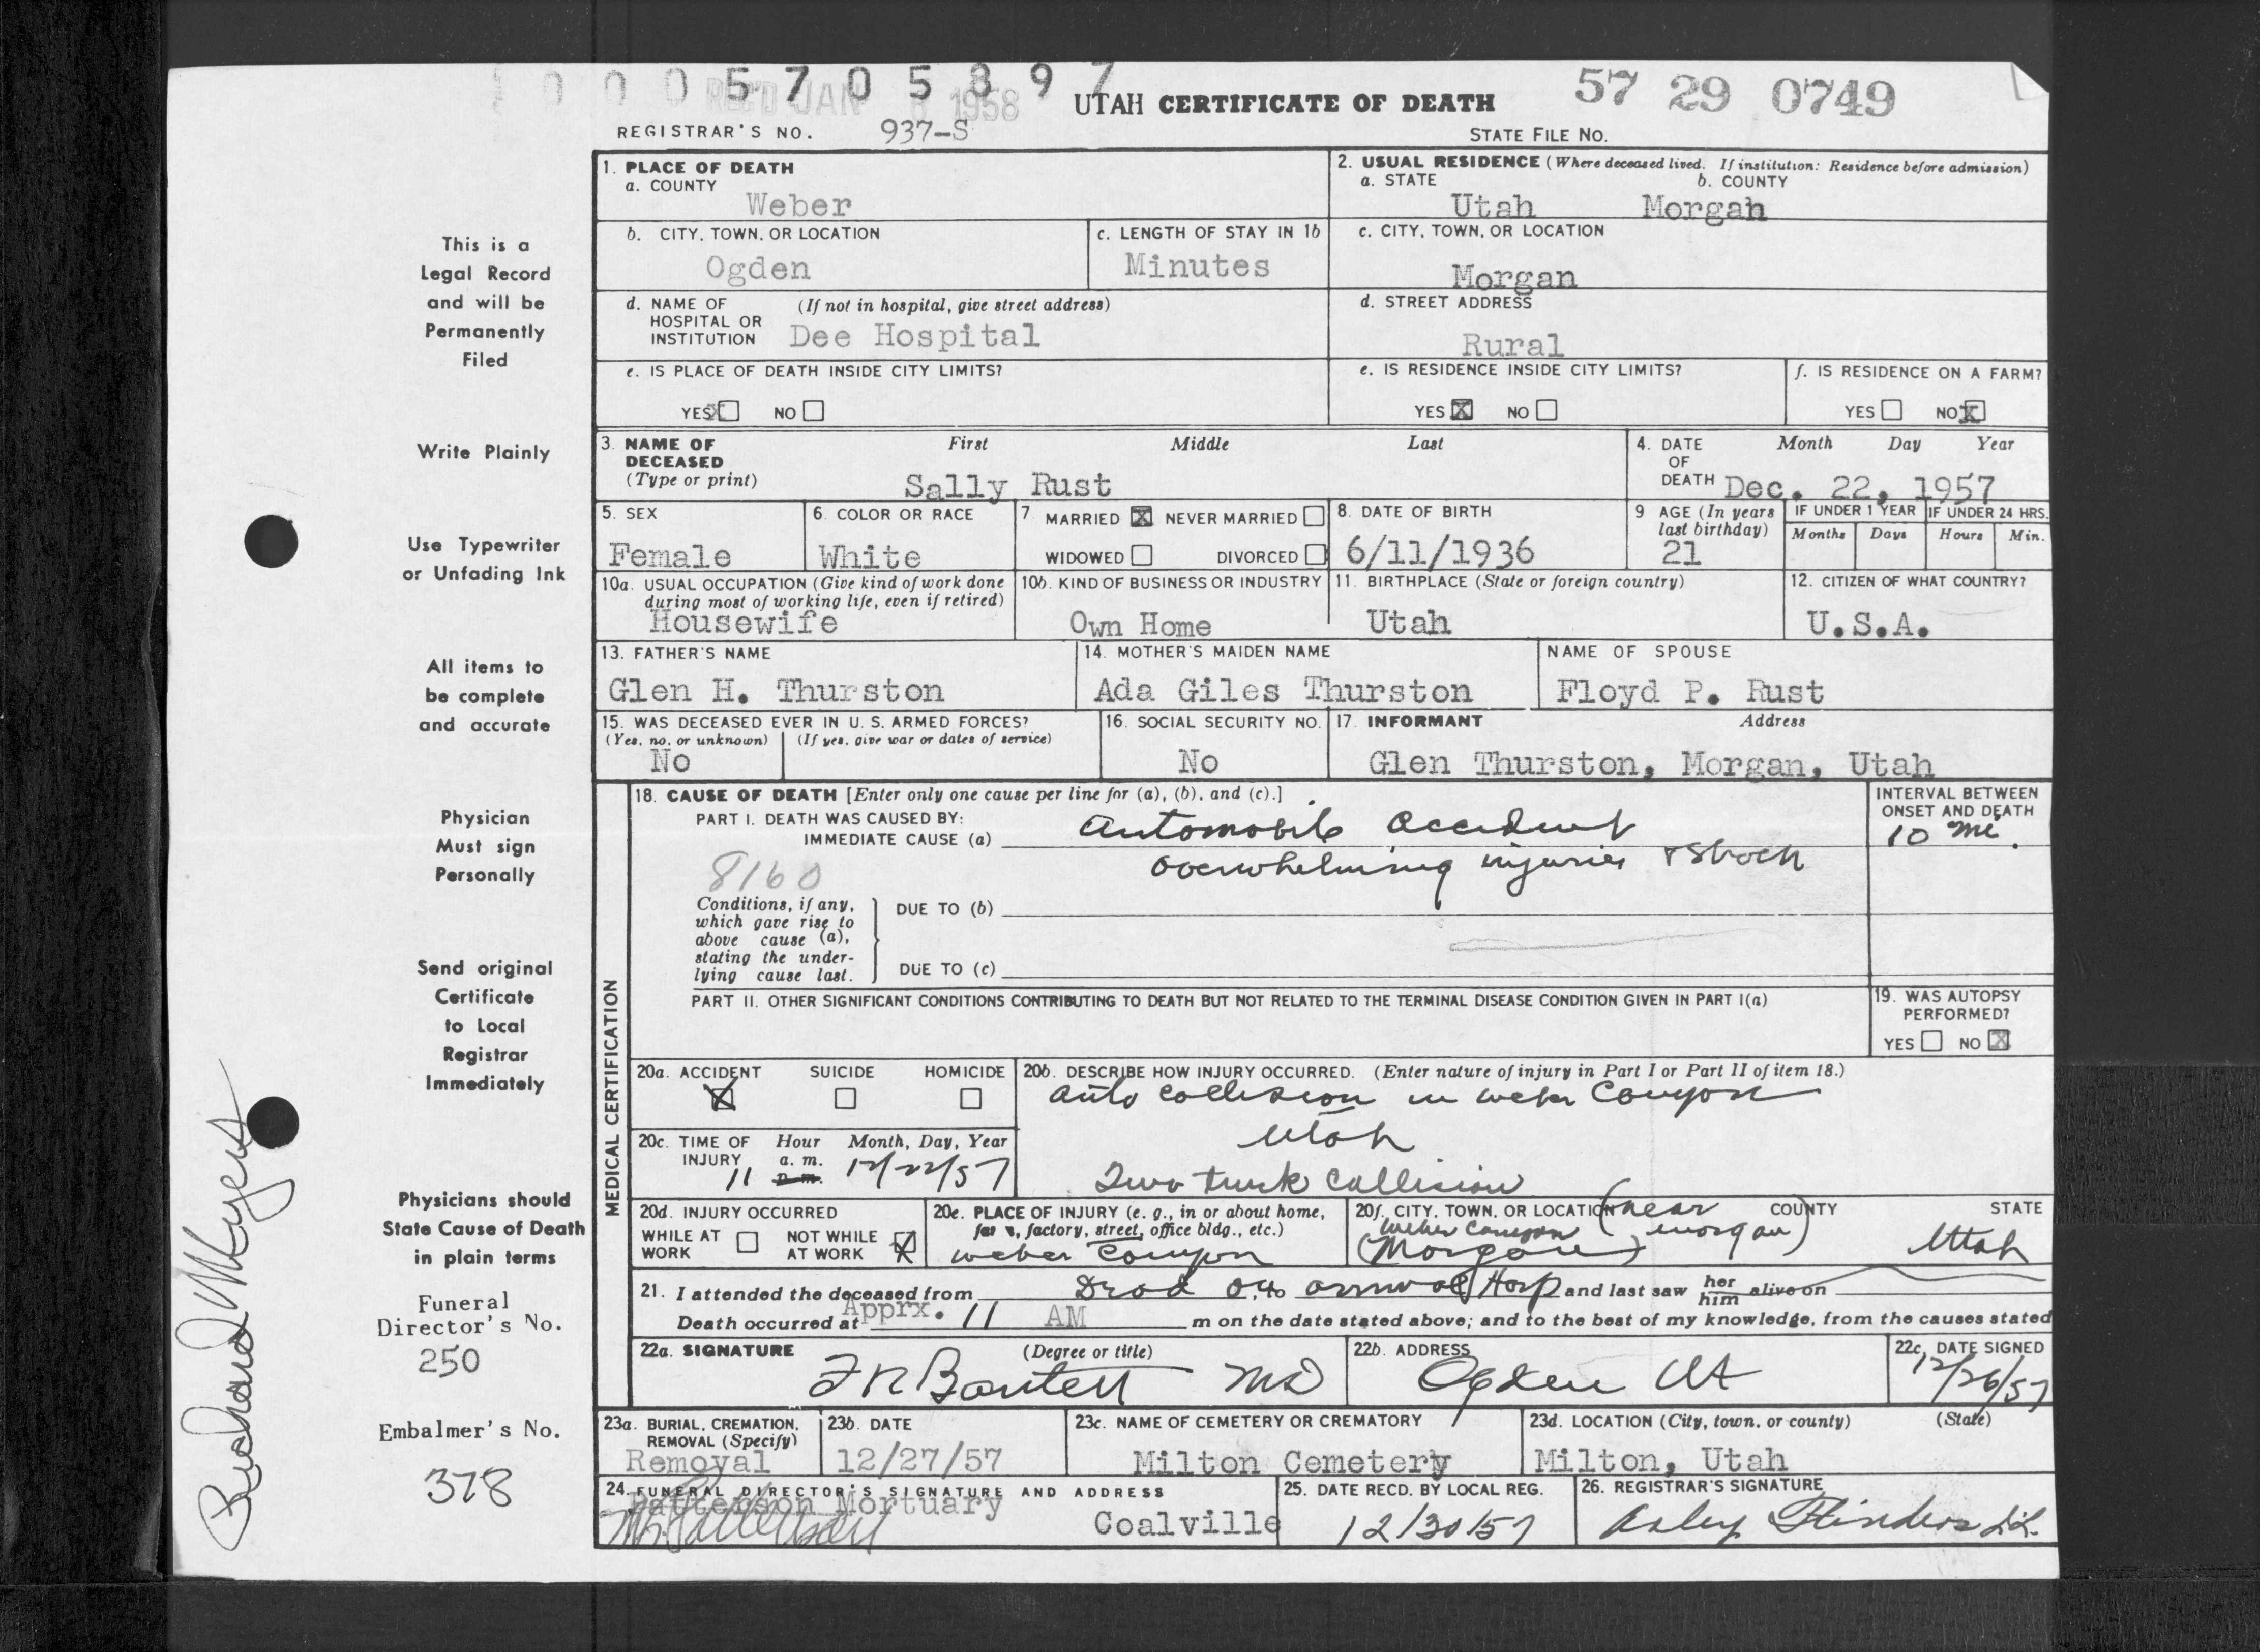 0 0 0 5 7 0 5 8 9 7
REC'D JAN 1958
UTAH CERTIFICATE OF DEATH
57 29 0749
REGISTRAR'S NO. 937-S
STATE FILE NO.
This is a
Legal Record
and will be
Permanently
Filed
Write Plainly
Use Typewriter
or Unfading Ink
All items to
be complete
and accurate
Physician
Must sign
Personally
Send original
Certificate
to Local
Registrar
Immediately
Physicians should
State Cause of Death
in plain terms
Funeral
Director's No.
250
Embalmer's No.
378
Richard Meyers
1. PLACE OF DEATH
a. COUNTY
Weber
2. USUAL RESIDENCE (Where deceased lived. If institution: Residence before admission)
a. STATE b. COUNTY
Utah Morgan
b. CITY, TOWN, OR LOCATION
Ogden
c. LENGTH OF STAY IN 1b
Minutes
c. CITY, TOWN, OR LOCATION
Morgan
d. NAME OF (If not in hospital, give street address)
HOSPITAL OR
INSTITUTION Dee Hospital
d. STREET ADDRESS
Rural
e. IS PLACE OF DEATH INSIDE CITY LIMITS?
YES X NO
e. IS RESIDENCE INSIDE CITY LIMITS?
YES X NO
f. IS RESIDENCE ON A FARM?
YES NO X
3. NAME OF First Middle Last
DECEASED
(Type or print) Sally Rust
4. DATE Month Day Year
OF
DEATH Dec. 22, 1957
5. SEX
Female
6. COLOR OR RACE
White
7. MARRIED X NEVER MARRIED
WIDOWED DIVORCED
8. DATE OF BIRTH
6/11/1936
9 AGE (In years
last birthday)
21
IF UNDER 1 YEAR IF UNDER 24 HRS.
Months Days Hours Min.
10a. USUAL OCCUPATION (Give kind of work done
during most of working life, even if retired)
Housewife
10b. KIND OF BUSINESS OR INDUSTRY
Own Home
11. BIRTHPLACE (State or foreign country)
Utah
12. CITIZEN OF WHAT COUNTRY?
U.S.A.
13. FATHER'S NAME
Glen H. Thurston
14. MOTHER'S MAIDEN NAME
Ada Giles Thurston
NAME OF SPOUSE
Floyd P. Rust
15. WAS DECEASED EVER IN U. S. ARMED FORCES?
(Yes, no, or unknown) (If yes, give war or dates of service)
No
16. SOCIAL SECURITY NO.
No
17. INFORMANT Address
Glen Thurston, Morgan, Utah
MEDICAL CERTIFICATION
18. CAUSE OF DEATH [Enter only one cause per line for (a), (b), and (c).]
PART I. DEATH WAS CAUSED BY:
IMMEDIATE CAUSE (a) Automobile accident
overwhelming injuries & shock
INTERVAL BETWEEN
ONSET AND DEATH
10 mi.
8160
Conditions, if any,
which gave rise to
above cause (a),
stating the under-
lying cause last.
DUE TO (b)
DUE TO (c)
PART II. OTHER SIGNIFICANT CONDITIONS CONTRIBUTING TO DEATH BUT NOT RELATED TO THE TERMINAL DISEASE CONDITION GIVEN IN PART I(a)
19. WAS AUTOPSY
PERFORMED?
YES NO X
20a. ACCIDENT SUICIDE HOMICIDE
X
20b. DESCRIBE HOW INJURY OCCURRED. (Enter nature of injury in Part I or Part II of item 18.)
auto collision in weber Canyon
Utah
Two truck collision
20c. TIME OF Hour Month, Day, Year
INJURY a. m.
11 p. m. 12/22/57
20d. INJURY OCCURRED
WHILE AT NOT WHILE
WORK AT WORK X
20e. PLACE OF INJURY (e. g., in or about home,
farm, factory, street, office bldg., etc.)
weber Canyon
20f. CITY, TOWN, OR LOCATION COUNTY STATE
(near
Weber Canyon morgan)
(Morgan) Utah
21. I attended the deceased from Dead on arrival Hosp and last saw her him alive on
Death occurred at Apprx. 11 AM m on the date stated above; and to the best of my knowledge, from the causes stated
22a. SIGNATURE (Degree or title)
MD
22b. ADDRESS
Ogden Ut
22c. DATE SIGNED
12/26/57
23a. BURIAL, CREMATION,
REMOVAL (Specify)
Removal
23b. DATE
12/27/57
23c. NAME OF CEMETERY OR CREMATORY
Milton Cemetery
23d. LOCATION (City, town, or county) (State)
Milton, Utah
24. FUNERAL DIRECTOR'S SIGNATURE AND ADDRESS
Patterson Mortuary
Coalville
25. DATE RECD. BY LOCAL REG.
12/30/57
26. REGISTRAR'S SIGNATURE
Flinders